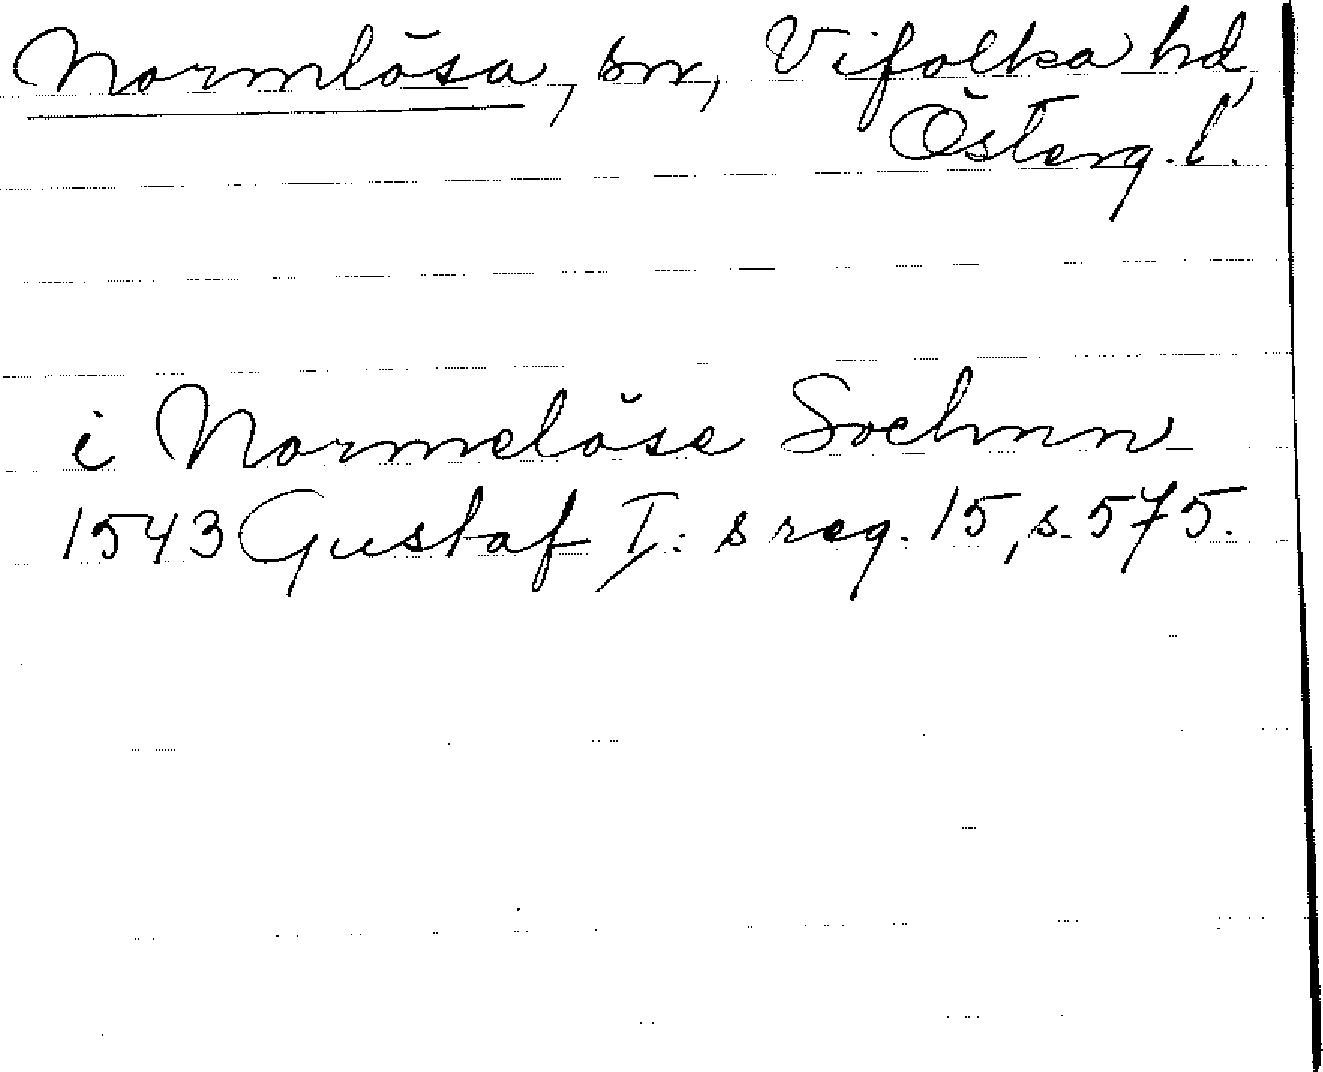 Normlösa, sn, Vifolka hd,
Österg. l.
i Normelöse Sochnn
1543 Gustaf I: s reg. 15, s. 575.